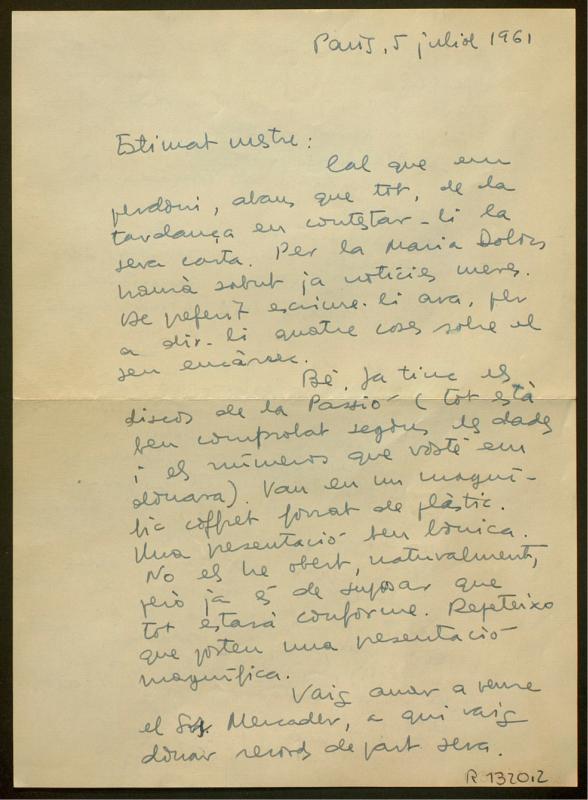 París, 5 juliol 1961
Estimat mestre:
Cal que em
perdoni, abans que tot, de la
tardança en contestar-li la
seva carta. Per la Maria Dolors
haurà sabut ja notícies meves.
He preferit escriure-li ara, per
a dir-li quatre coses sobre el
seu encàrrec.
Bé. Ja tinc els
discos de la Passió (tot està
ben comprobat segons les dades
i els números que vostè em
donava). Van en un magní-
fic coffret forrat de plàstic.
Una presentació ben bonica.
No els he obert, naturalment,
però ja és de suposar que
tot estarà conforme. Repeteixo
que porten una presentació
magnífica.
Vaig anar a veure
el Sr. Mercader, a qui vaig
donar records de part seva.
R.1320.2